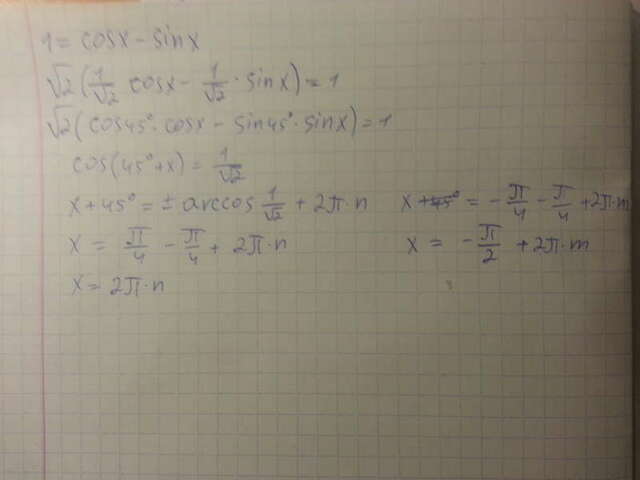 1 = cosx - sinx
√2(1/√2 cosx - 1/√2 · sinx) = 1
√2(cos45° · cosx - sin45° · sinx) = 1
cos(45° + x) = 1/√2
x + 45° = ± arccos 1/√2 + 2π·n
x = π/4 - π/4 + 2π·n
x = 2π·n
x +45° = - π/4 - π/4 + 2π·m
x = - π/2 + 2π·m